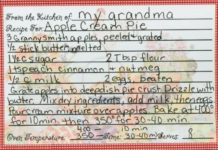 From the Kitchen of my grandma
Recipe For Apple Cream Pie
3 Granny Smith apples, peeled & grated
1/2 stick butter, melted
1 1/4 c sugar 2 Tbsp flour
1 tspeach cinnamon + nutmeg
1/2 c milk 2 eggs, beaten
Grate apples into deep dish pie crust. Drizzle with
butter. Mix dry ingredients, add milk, then eggs
Pour cream mixture over apples. Bake at 400°
for 10 min, then 350° for 30-40 min.
400 10 min
Oven Temperature 350 Time 30-40 min Serves 8